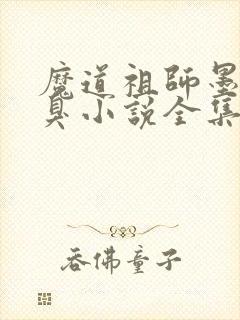 魔道祖師墨
臭小説全集
吞佛童子